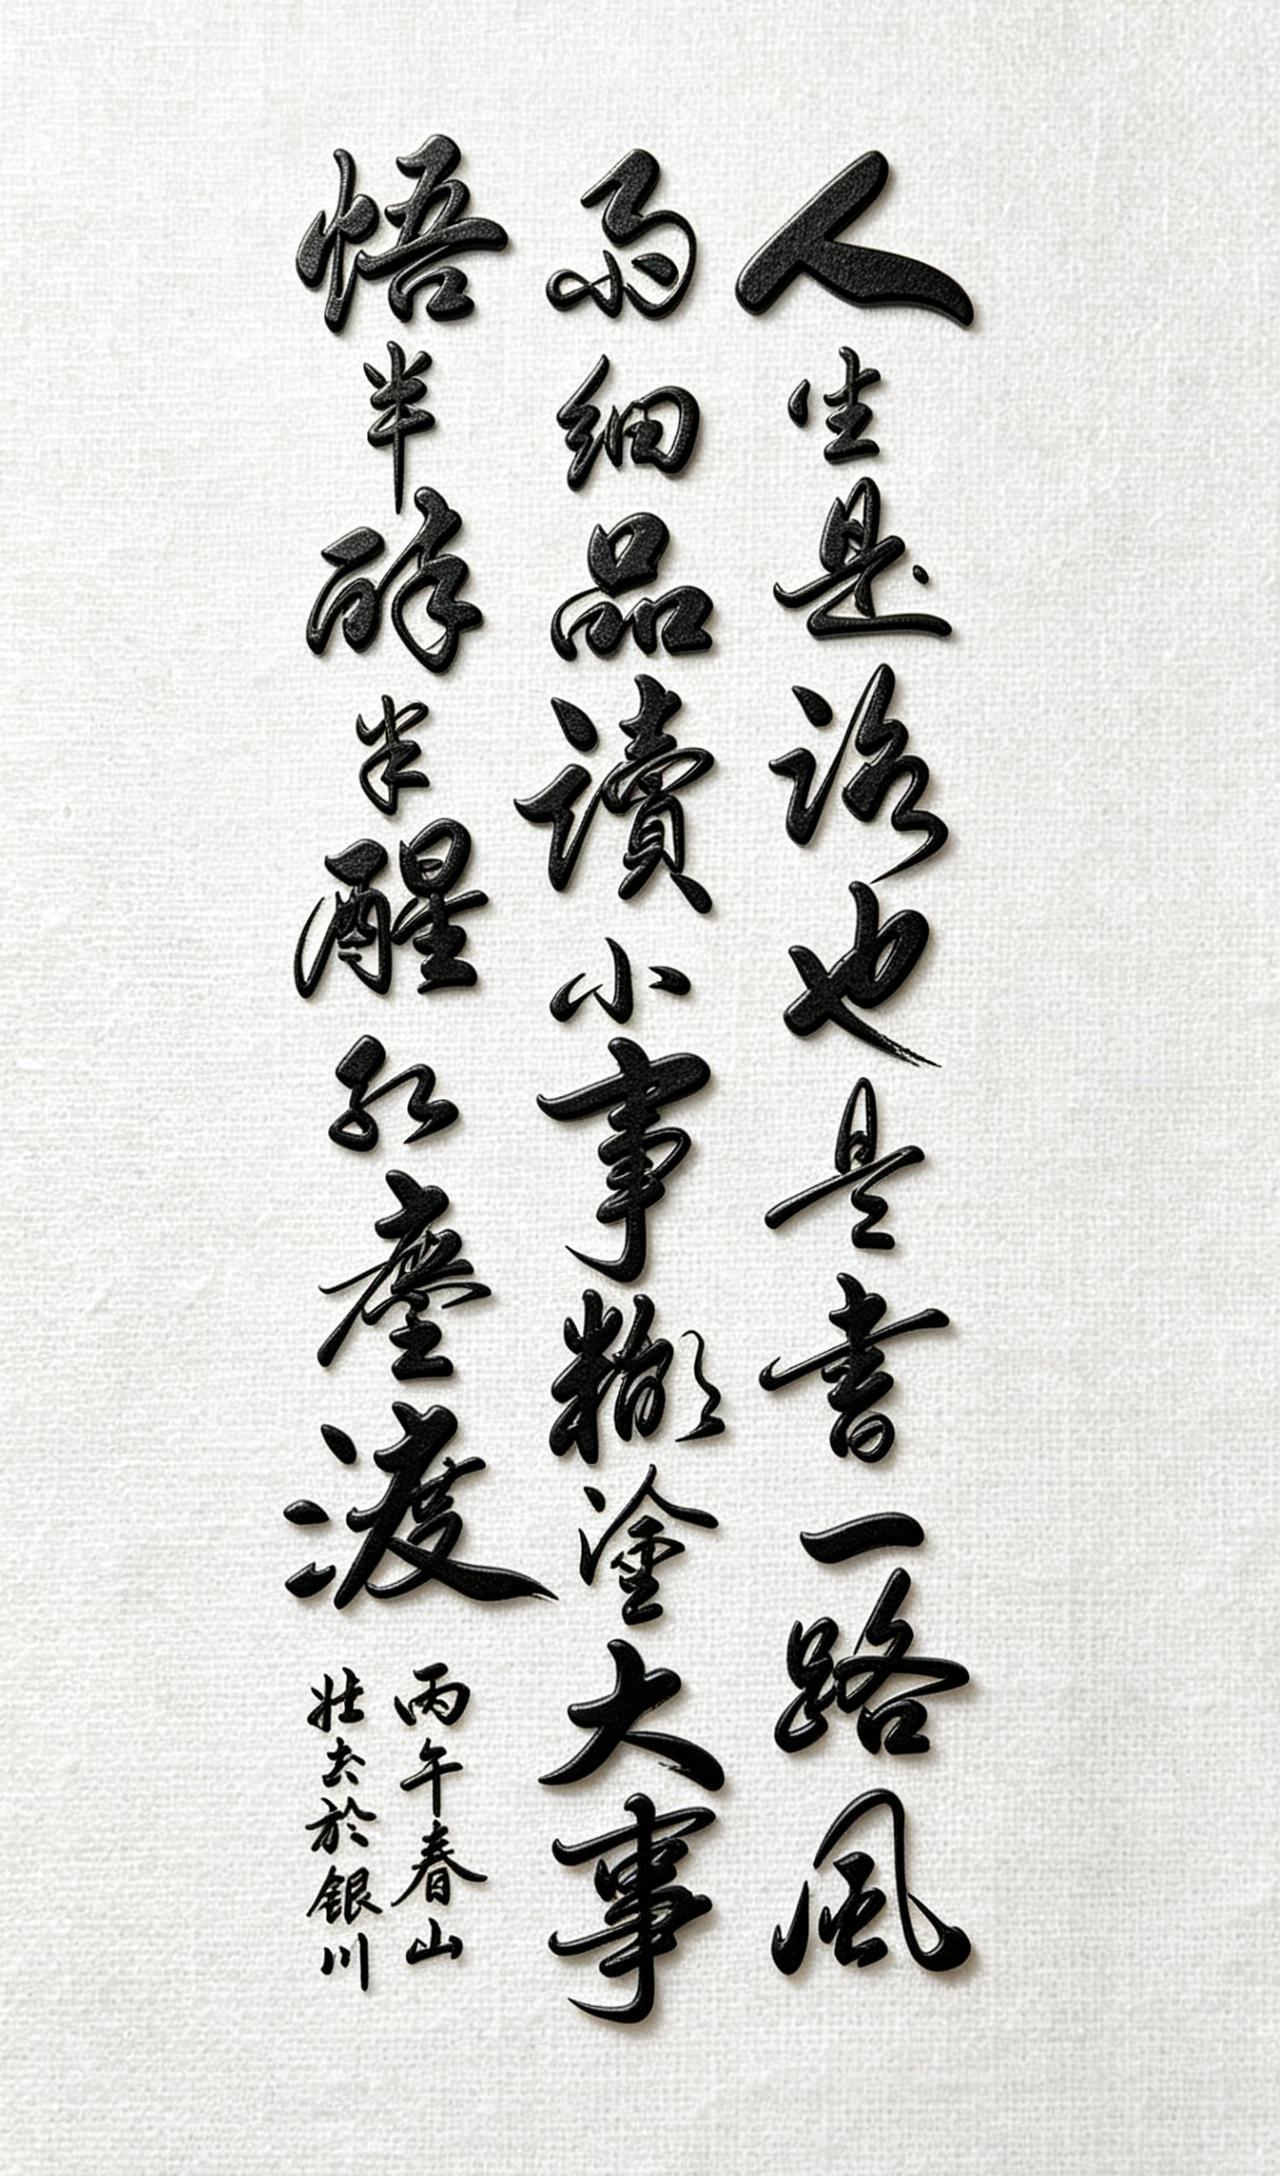 人生是路也是書一路風
雨細品讀小事糊塗大事
悟半醉半醒紅塵渡
丙午春山
壮去於銀川